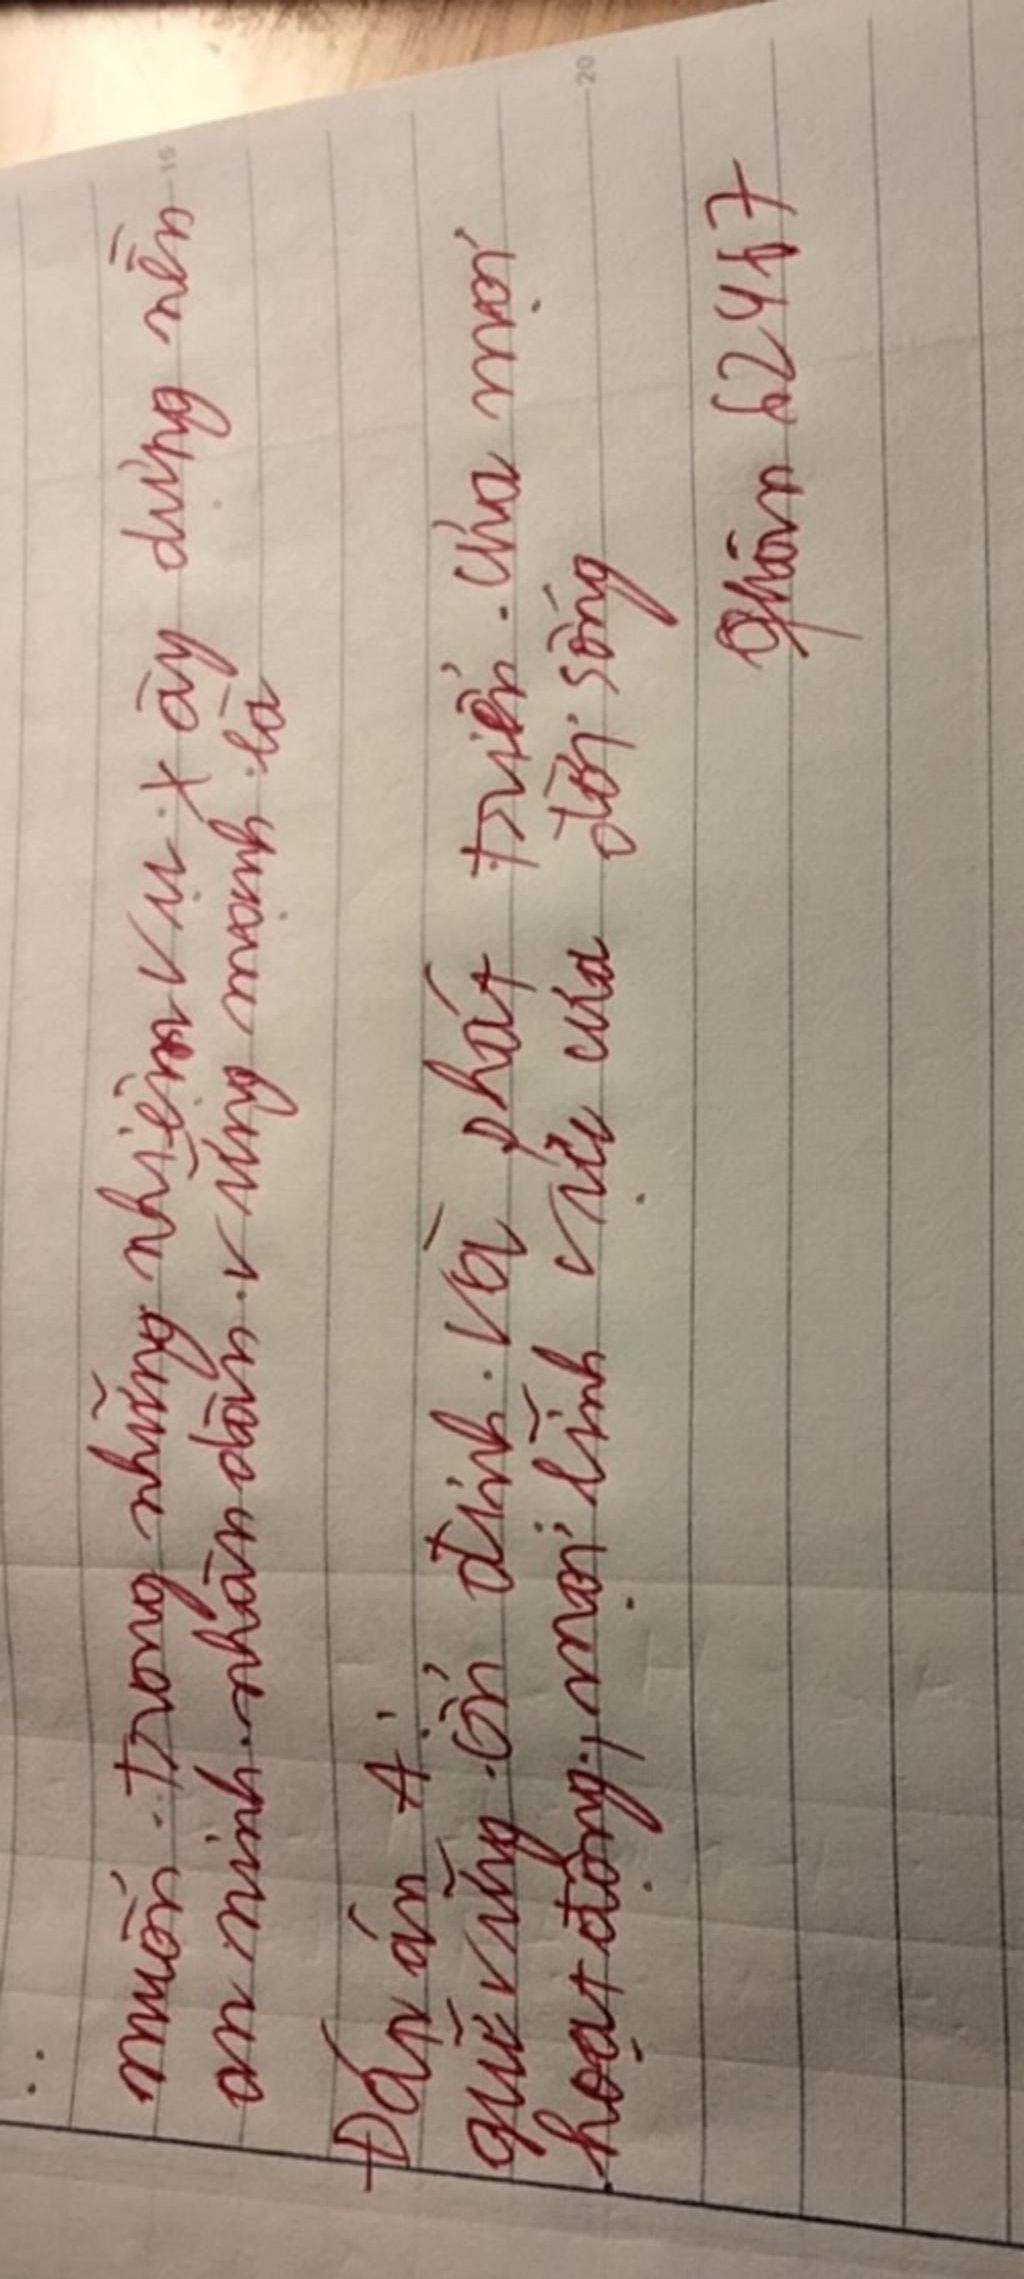 muốn trong những nhiệm vụ xây dựng nền
an ninh nhân dân vững mạnh là
Đáp án A:
giữ vững ổn định và phát triển của mọi
hoạt động, mọi lĩnh vực của đời sống
20